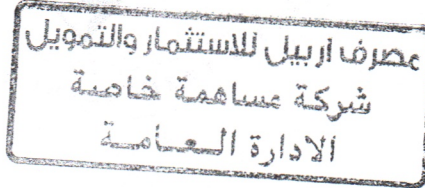 مصرف اربيل للاستثمار والتمويل
شركة مساهمة خاصة
الادارة العامة